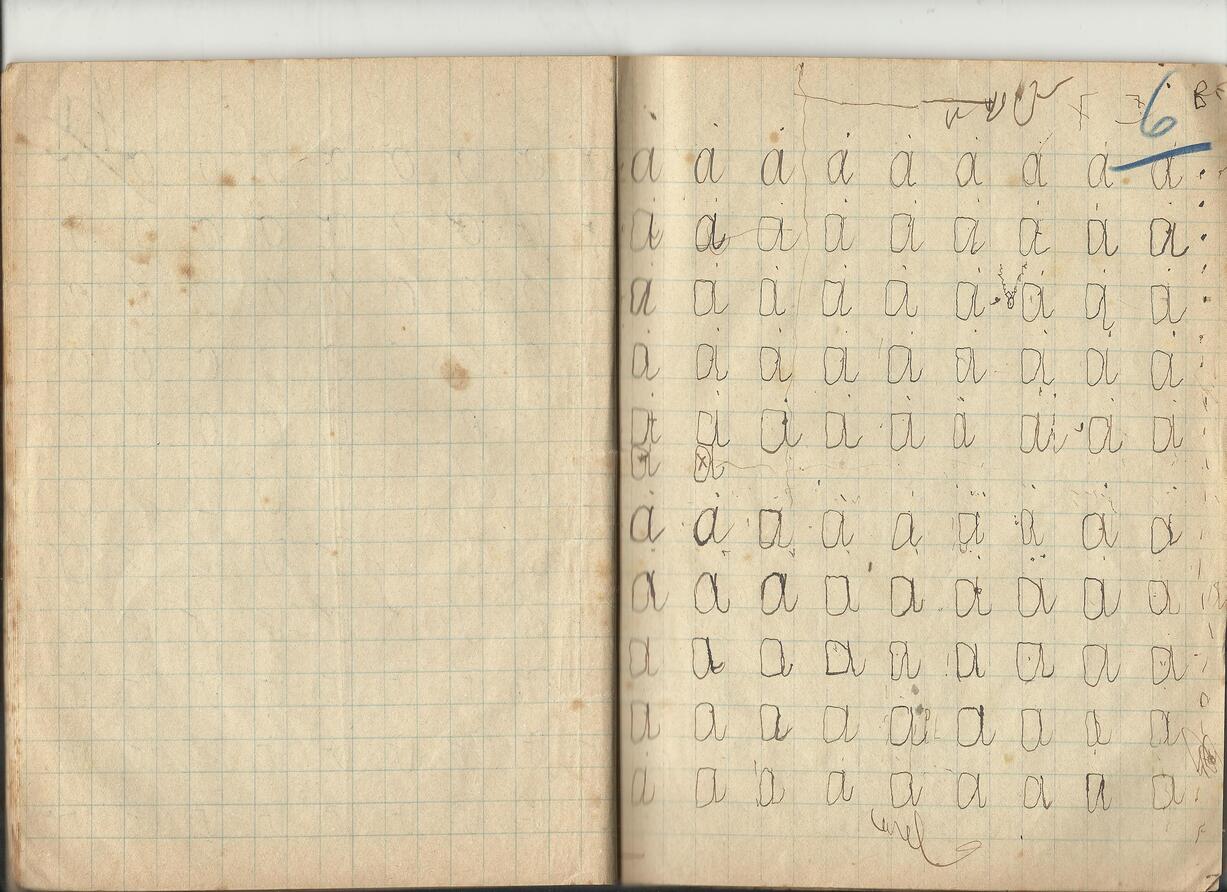 6
a a a a a a a a a
a a a a a a a a a
a a a a a a a a a
a a a a a a a a a
a a a a a a a a a
a a
a a a a a a a a a
a a a a a a a a a
a a a a a a a a a
a a a a a a a a a
a a a a a a a a a